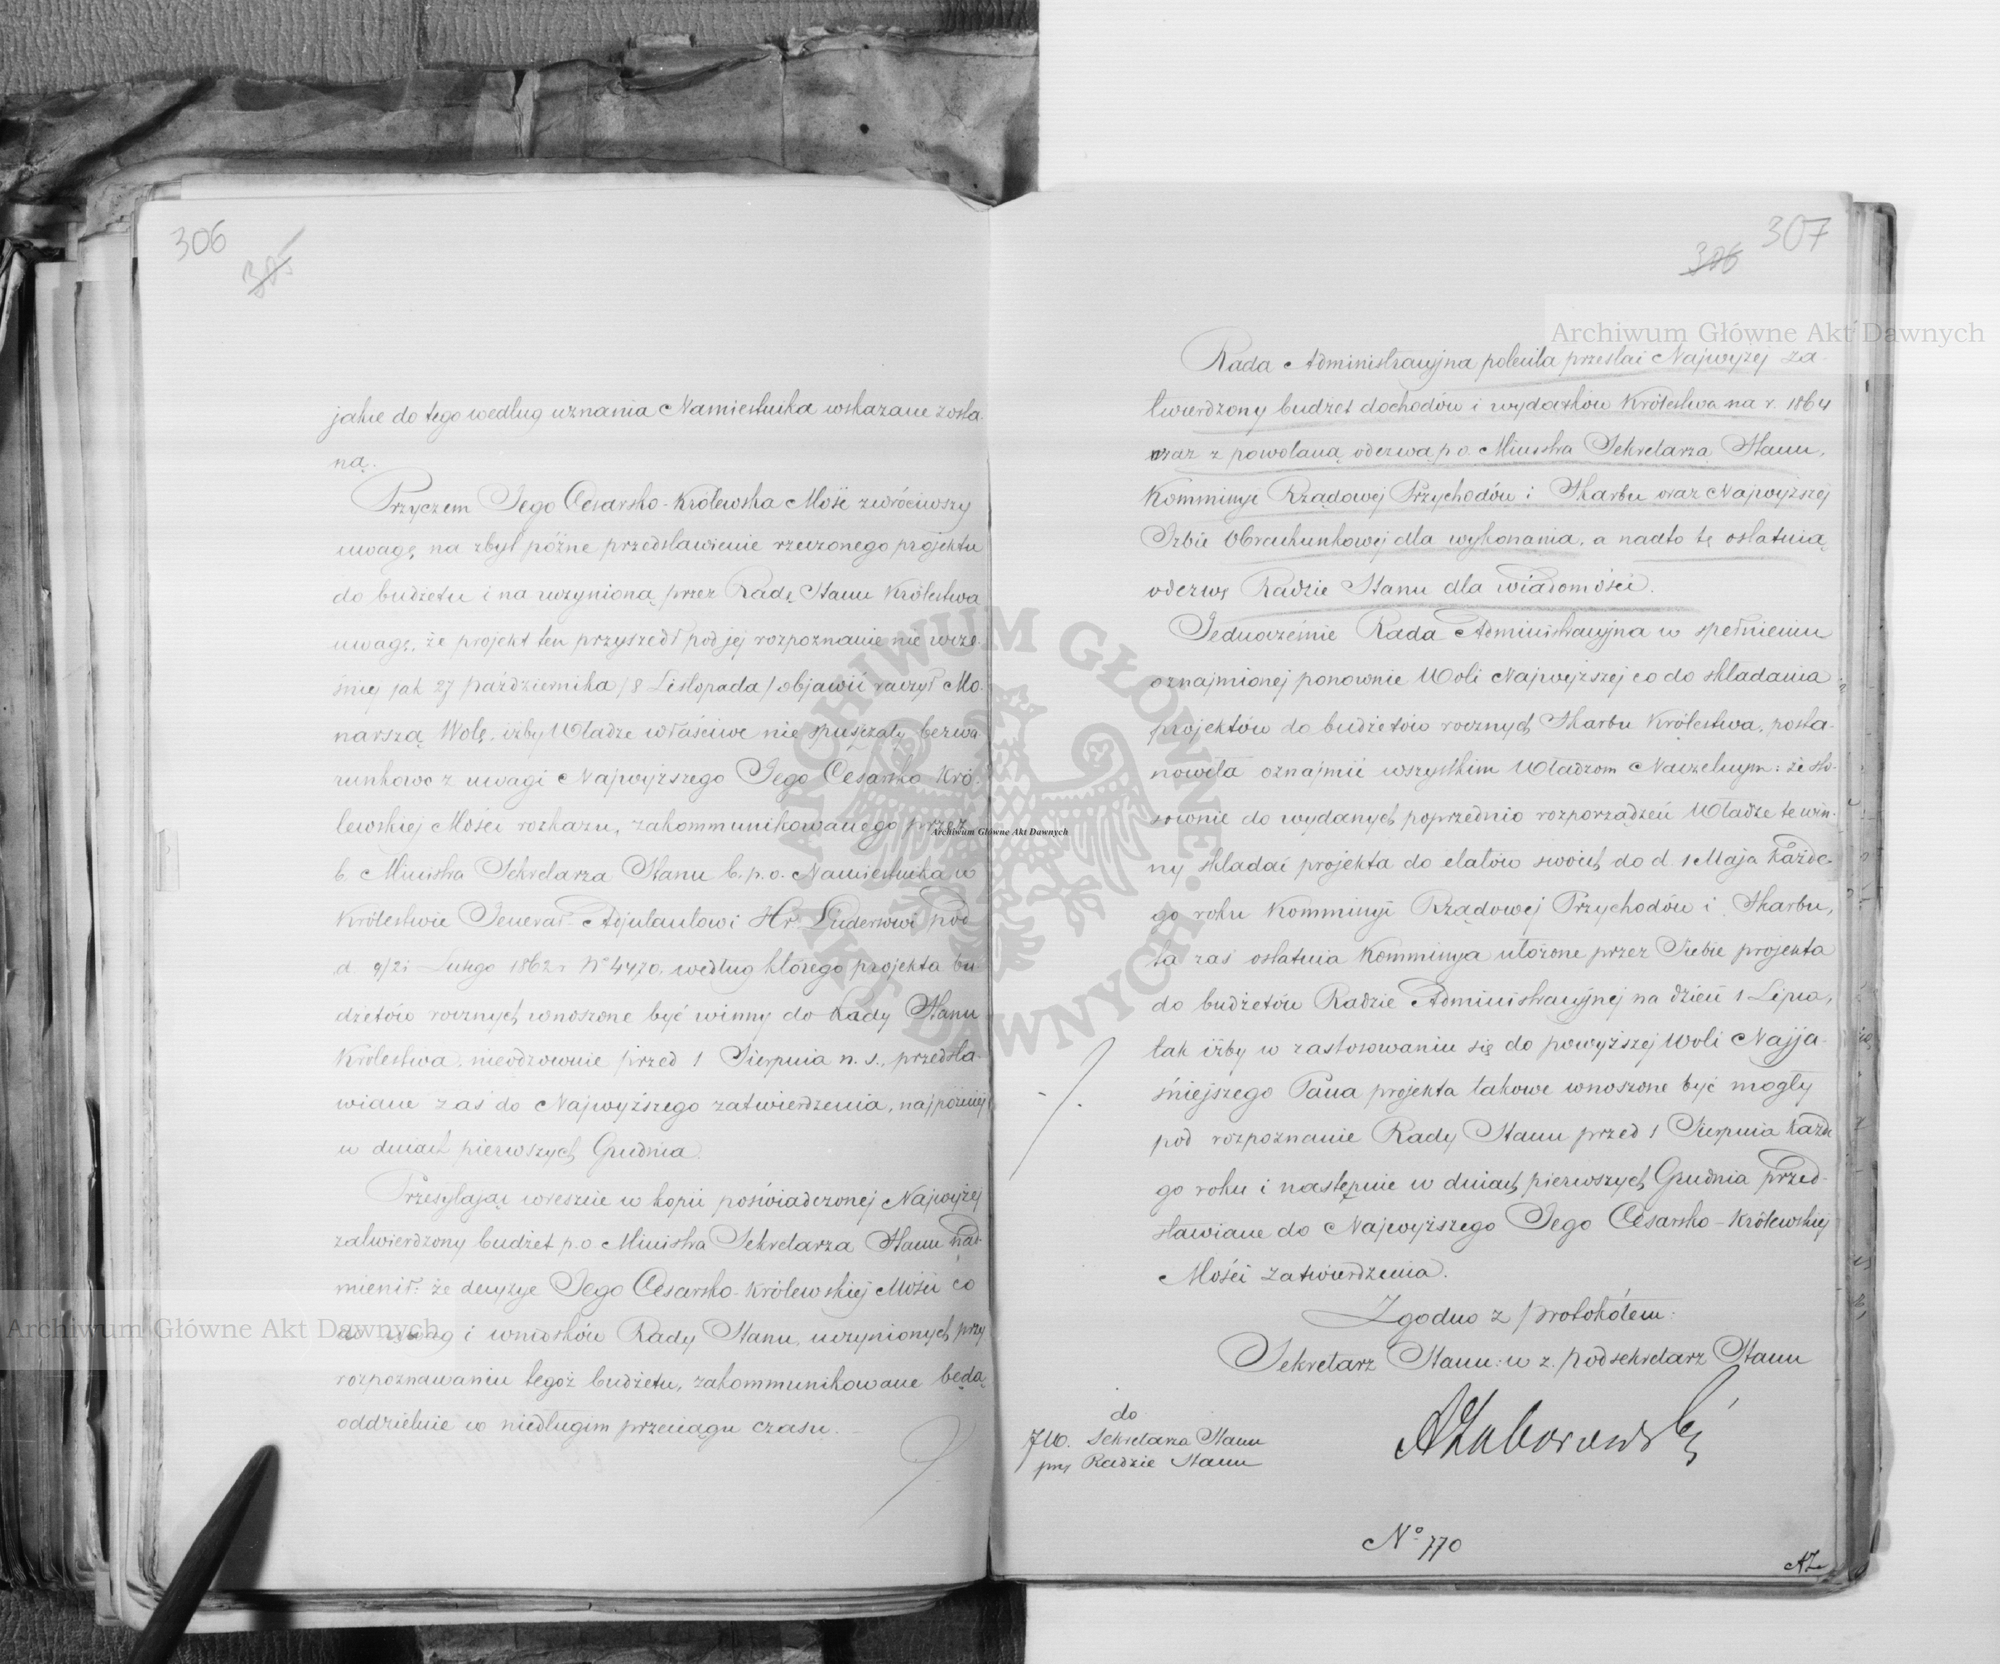 306
305
jakie do tego według uznania Namiestnika wskazane zosta-
ną.
Przyczem Jego Cesarsko-Królewska Mość zwróciwszy
uwagę na zbyt późne przedstawienie rzeczonego projektu
do budżetu i na uczynioną przez Radę Stanu Królestwa
uwagę, że projekt ten przyszedł pod jej rozpoznanie nie wcze-
śniej jak 27 Października /8 Listopada/ objawić raczył Mo-
narszą Wolę, iżby Władze właściwe nie spuszczały bezwa-
runkowo z uwagi Najwyższego Jego Cesarsko Kró-
lewskiej Mości rozkazu, zakommunikowanego przez
b. Ministra Sekretarza Stanu b. p. o. Namiestnika w
Królestwie Generał-Adjutantowi Hr. Lüdersowi pod
d. 9/21 Lutego 1862 r. No 4470, według którego projekta bu-
dżetów rocznych wnoszone być winny do Rady Stanu
Królestwa, nieodzownie przed 1 Sierpnia n. s., przedsta-
wiane zaś do Najwyższego zatwierdzenia, najpóźniej
w dniach pierwszych Grudnia.
Przesyłając wreszcie w kopii poświadczonej Najwyżej
zatwierdzony budżet p. o Ministra Sekretarza Stanu nad-
mienił: że decyzye Jego Cesarsko-Królewskiej Mości co
do uwag i wniosków Rady Stanu, uczynionych przy
rozpoznawaniu tegoż budżetu, zakommunikowane będą
oddzielnie w niedługim przeciągu czasu.
307
306
Rada Administracyjna poleciła przesłać Najwyżej za-
twierdzony budżet dochodów i wydatków Królestwa na r. 1864
wraz z powołaną odezwą p o. Ministra Sekretarza Stanu,
Kommissyi Rządowej Przychodów i Skarbu oraz Najwyższej
Izbie Obrachunkowej dla wykonania, a nadto tę ostatnią
odezwę Radzie Stanu dla wiadomości.
Jednocześnie Rada Administracyjna w spełnieniu
oznajmionej ponownie Woli Najwyższej co do składania
projektów do budżetów rocznych Skarbu Królestwa, posta-
nowiła oznajmić wszystkim Władzom Naczelnym: że sto-
sownie do wydanych poprzednio rozporządzeń Władze te win-
ny składać projekta do etatów swoich do d. 1 Maja każde-
go roku Kommissyi Rządowej Przychodów i Skarbu,
ta zaś ostatnia Kommissya ułożone przez Siebie projekta
do budżetów Radzie Administracyjnej na dzień 1 Lipca,
tak iżby w zastosowaniu się do powyższej Woli Najja-
śniejszego Pana projekta takowe wnoszone być mogły
pod rozpoznanie Rady Stanu przed 1 Sierpnia każde
go roku i następnie w dniach pierwszych Grudnia przed-
stawiane do Najwyższego Jego Cesarsko-Królewskiej
Mości zatwierdzenia.
Zgodno z protokółem:
Sekretarz Stanu: w z. podsekretarz Stanu
do
JW. Sekretarza Stanu
przy Radzie Stanu
No 770
Archiwum Główne Akt Dawnych
Archiwum Główne Akt Dawnych
Archiwum Główne Akt Dawnych
ARCHIWUM GŁÓWNE AKT DAWNYCH